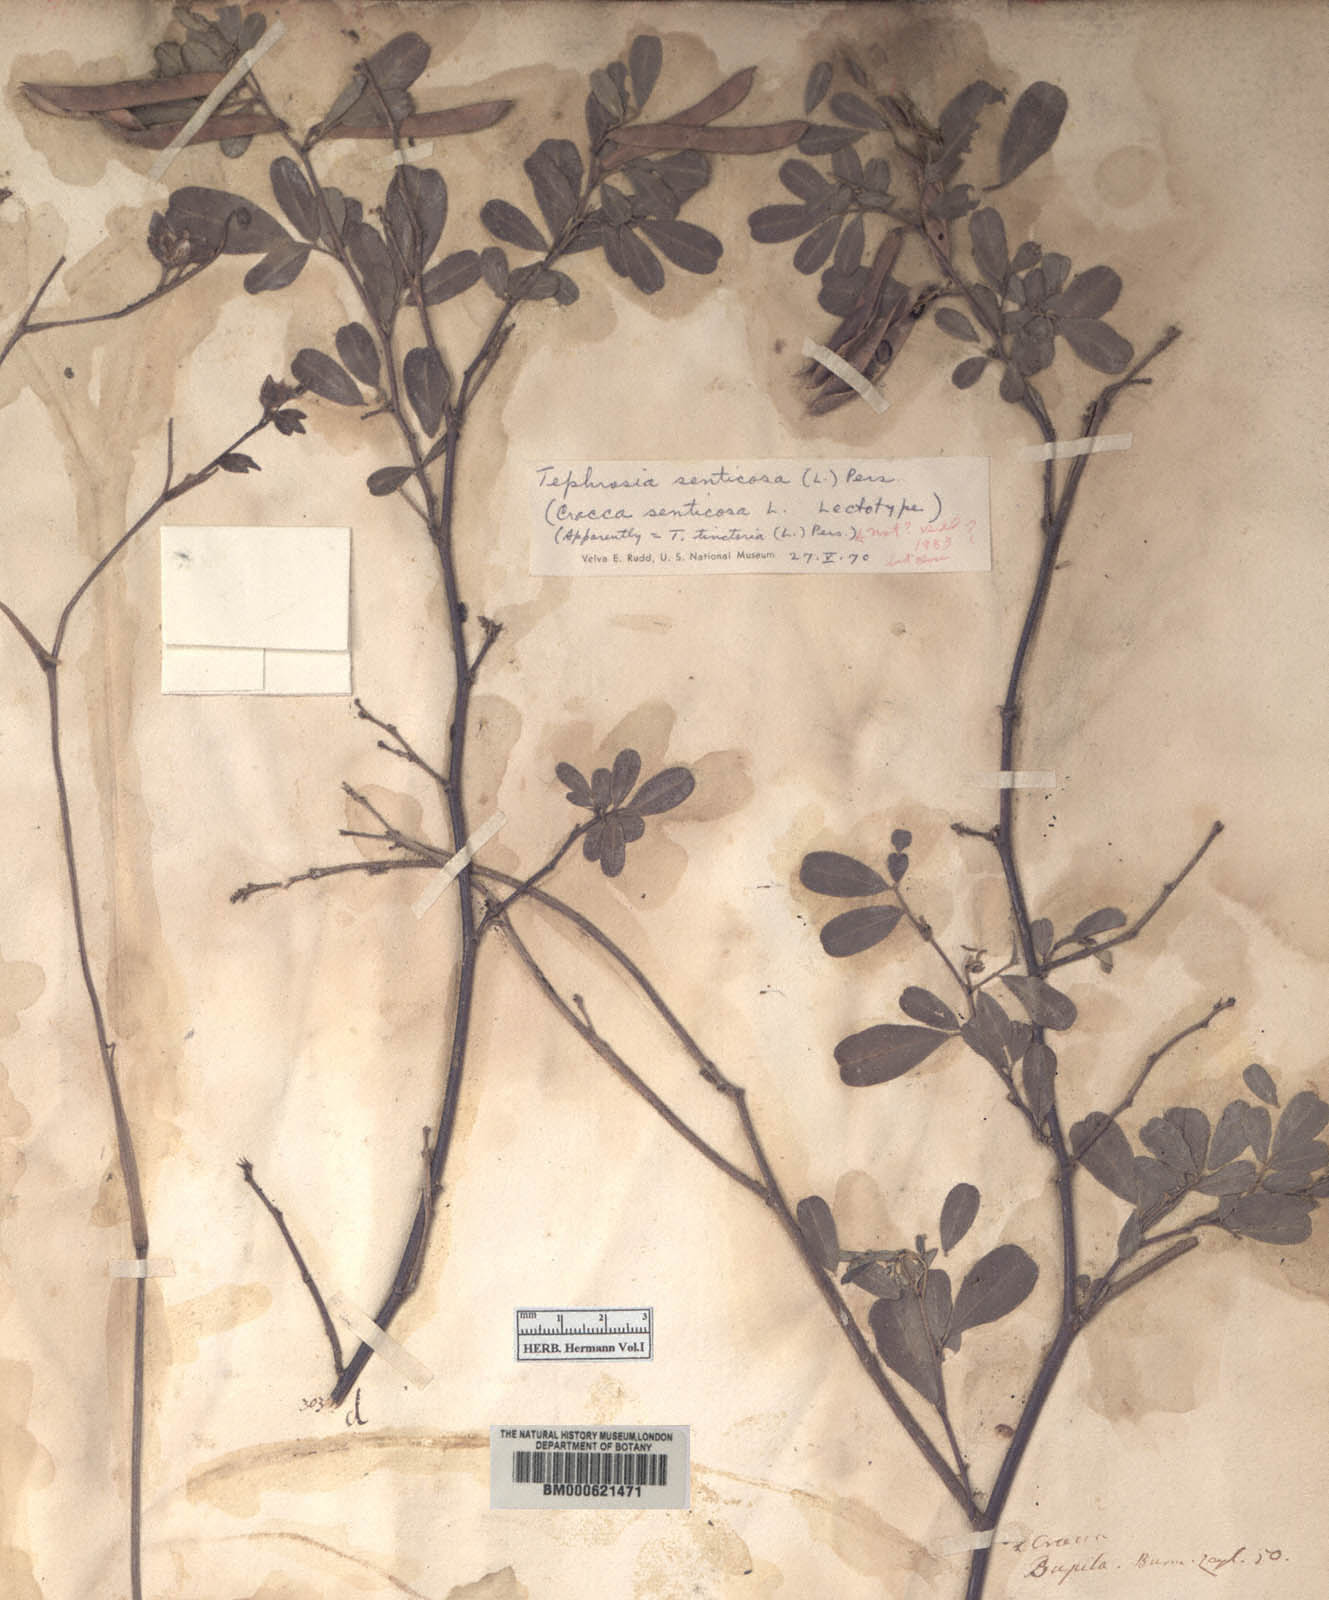 Tephrosia senticosa (L.) Pers.
(Cracca senticosa L. Lectotype)
(Apparently = T. tinctoria (L.) Pers.) not?
1983
Velva E. Rudd, U. S. National Museum 27.V.70
mm 1 2 3
HERB. Hermann Vol.I
303 d
THE NATURAL HISTORY MUSEUM,LONDON
DEPARTMENT OF BOTANY
BM000621471
Cracca
Bupila. Burm. zeyl. 50.